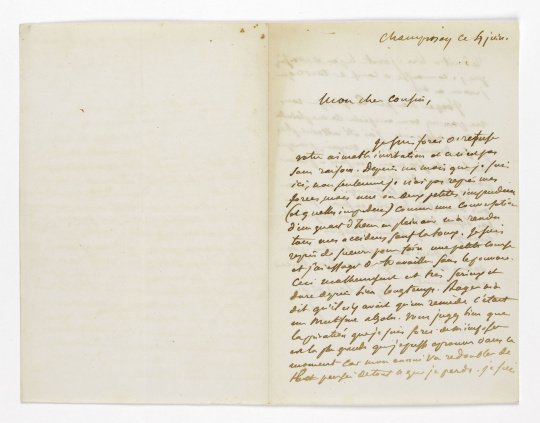 Champrosay ce 4 juin.
Mon cher cousin,
je suis forcé de refuser
votre aimable invitation et ce n'est pas
sans raison. Depuis un mois que je suis
ici, non seulement je n'ai pas repris mes
forces mais une ou deux petites imprudences
(et quelles imprudences) comme une conversation
d'un quart d'heure en plein air m'a rendu
tous mes accidents sauf la toux. Je suis
repris de pour faire une petite course
et j'ai essayé de travailler sans le pouvoir.
Ceci malheureusement est très sérieux et
dure depuis bien longtemps. m'a
dit qu'il n'y avait qu'un remède c'était
un absolu. Vous jugez bien que
la privation que je suis forcé de m'imposer
est la plus grande que je puisse éprouver dans ce
moment car mon ennui va redoubler de
tout ce que je perds. je suis